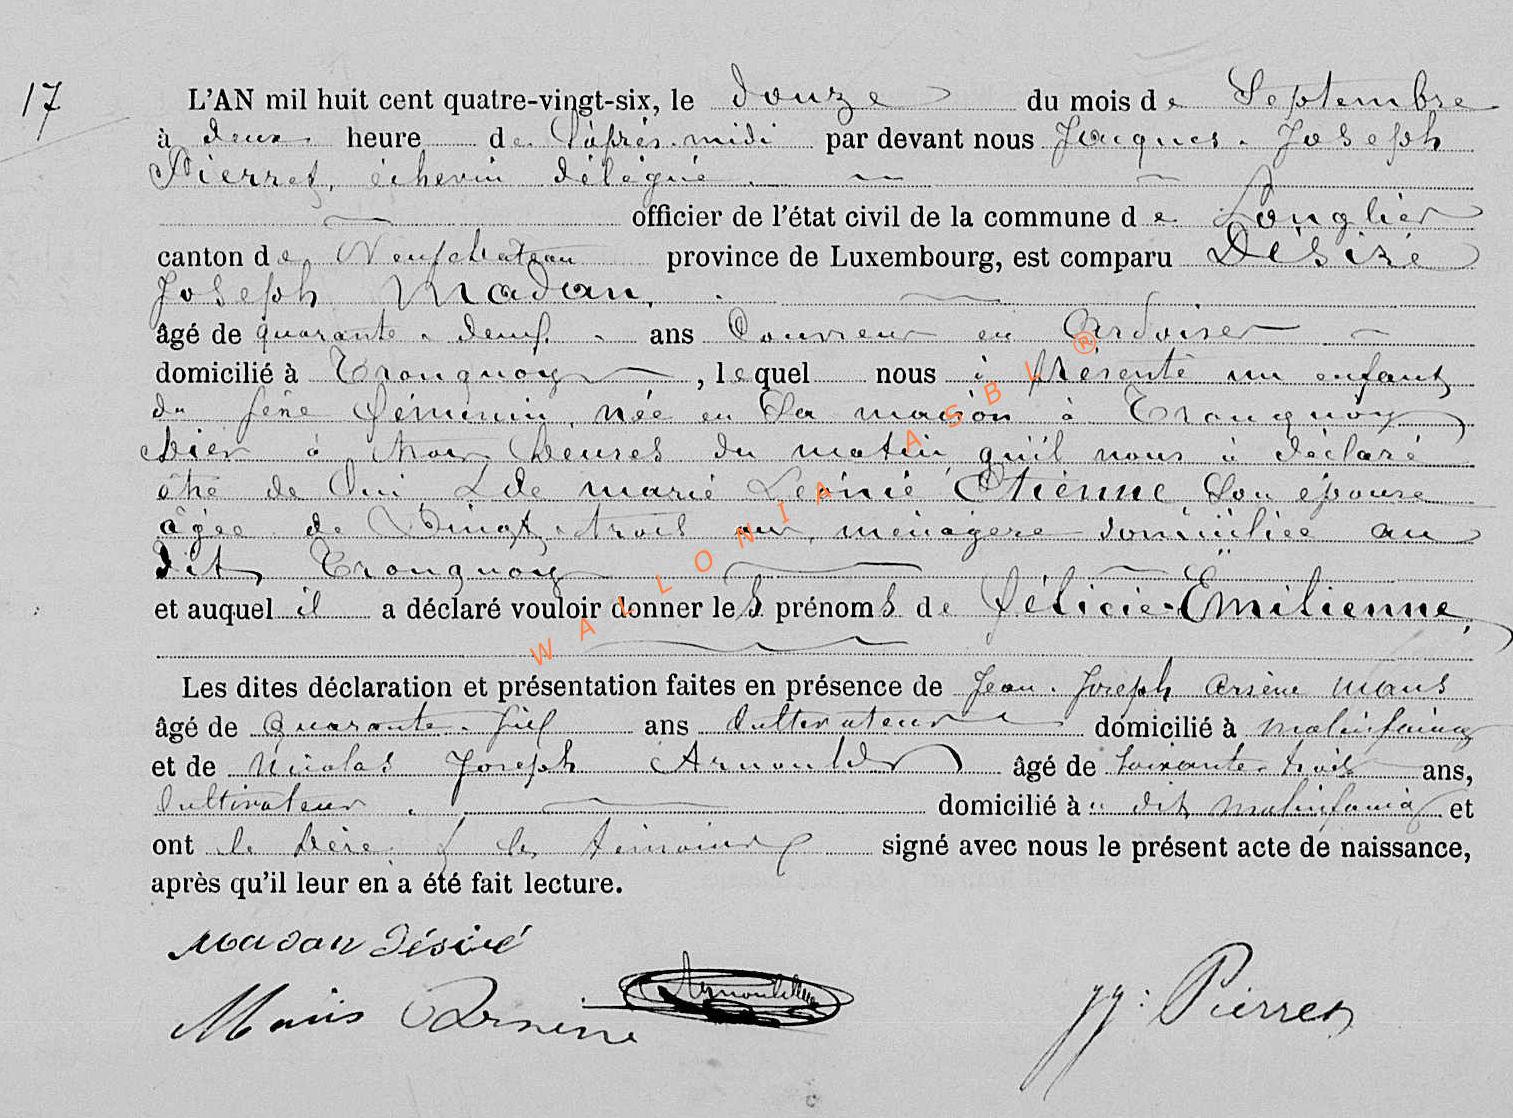 17
L'AN mil huit cent quatre-vingt-six, le douze du mois de Septembre
à deux heure de l'après-midi par devant nous Jacques-Joseph
Pierret, échevin délégué
officier de l'état civil de la commune de Longlier
canton de Neufchateau province de Luxembourg, est comparu Désiré
Joseph Madan,
âgé de quarante-neuf ans Couvreur en Ardoises
domicilié à Tronquoy, lequel nous à présenté un enfant
du sexe féminin, née en sa maison à Tronquoy
hier à trois heures du matin qu'il nous à déclaré
être de lui & de marie Léonie Etienne son épouse
âgée de Vingt-trois ans, ménagère domiciliée au
dit Tronquoy
et auquel il a déclaré vouloir donner les prénoms de Félicie-Emilienne,
Les dites déclaration et présentation faites en présence de Jean-Joseph Arsène Maus
âgé de quarante-six ans Cultivateur domicilié à malinfaing
et de Nicolas Joseph Arnould âgé de soixante-trois ans,
Cultivateur domicilié à dit malinfaing et
ont le père & les témoins signé avec nous le présent acte de naissance,
après qu'il leur en a été fait lecture.
Madan Désiré
Maus Arsene
JJ: Pierret
WALLONIA ASBL ®